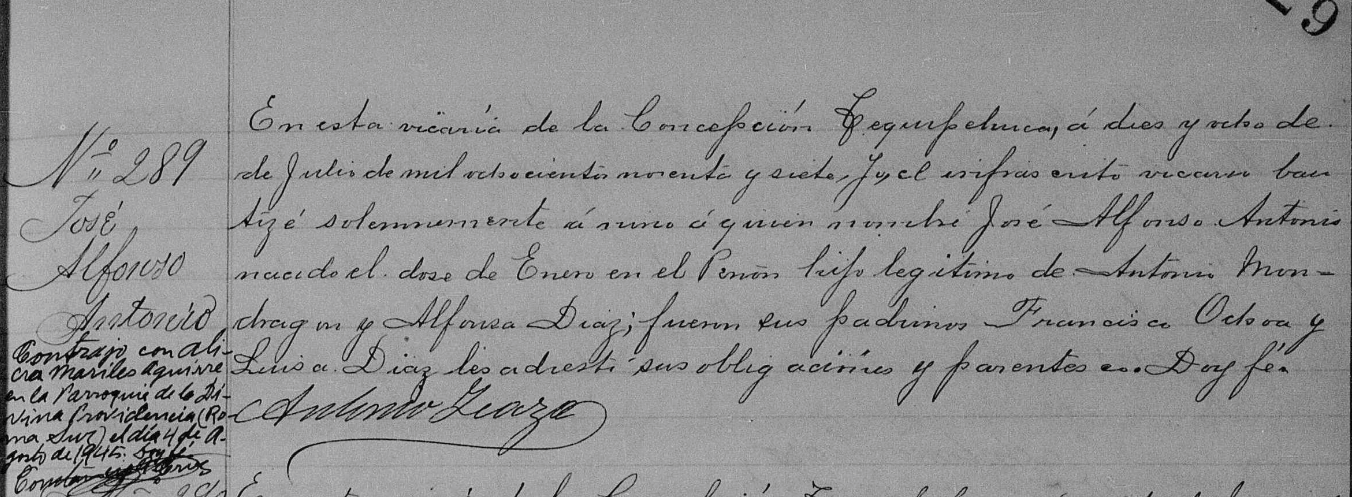 29
Nº 289
José
Alfonso
Antonio
Contrajo con Ali-
cia Mariles Aguirre
en la Parroquia de la Di-
vina Providencia (Ro-
ma Sur) el día 4 de A-
gosto de 1945. Doy fé.
En esta vicaría de la Concepción Tequipehuca, á dies y ocho de
de Julio de mil ochocientos noventa y siete, Yo, el infrascrito vicario bau
tizé solemnemente á nino á quien nombré José Alfonso Antonio
nacido el dose de Enero en el Penón hijo legitimo de Antonio Mon-
dragon y Alfonsa Diaz; fueron sus padrinos Francisco Ochoa y
Luisa Diaz les adrestí sus obligaciónes y parentesco. Doy fé.
Antonio